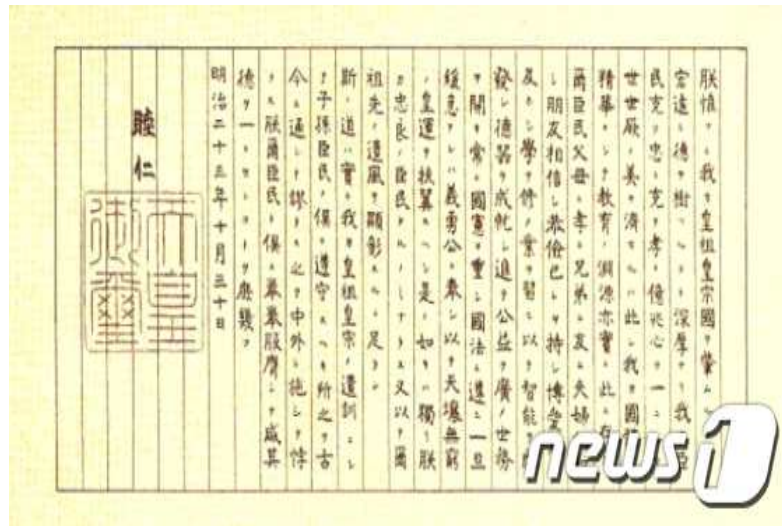 朕惟フニ我カ皇祖皇宗國ヲ肇ム
宏遠ニ德ヲ樹ツルコト深厚ナリ我カ臣
民克ク忠ニ克ク孝ニ億兆心ヲ一ニ
世世厥ノ美ヲ濟セルハ此レ我カ國
精華ニシテ教育ノ淵源亦實ニ此ニ存
爾臣民父母ニ孝ニ兄弟ニ友ニ夫婦
シ朋友相信シ恭儉己レヲ持シ博愛
及ホシ學ヲ修メ業ヲ習ヒ以テ智能ヲ
發シ德器ヲ成就シ進テ公益ヲ廣メ世務
ヲ開キ常ニ國憲ヲ重シ國法ニ遵ヒ一旦
緩急アレハ義勇公ニ奉シ以テ天壤無窮
ノ皇運ヲ扶翼スヘシ是ノ如キハ獨リ朕
カ忠良ノ臣民タルノミナラス又以テ爾
祖先ノ遺風ヲ顯彰スルニ足ラン
斯ノ道ハ實ニ我カ皇祖皇宗ノ遺訓ニシ
テ子孫臣民ノ俱ニ遵守スヘキ所之ヲ古
今ニ通シテ謬ラス之ヲ中外ニ施シテ悖
ラス朕爾臣民ト俱ニ拳拳服膺シテ咸其
德ヲ一ニセンコトヲ庶幾フ
明治二十三年十月三十日
睦仁
天皇
御璽
news1